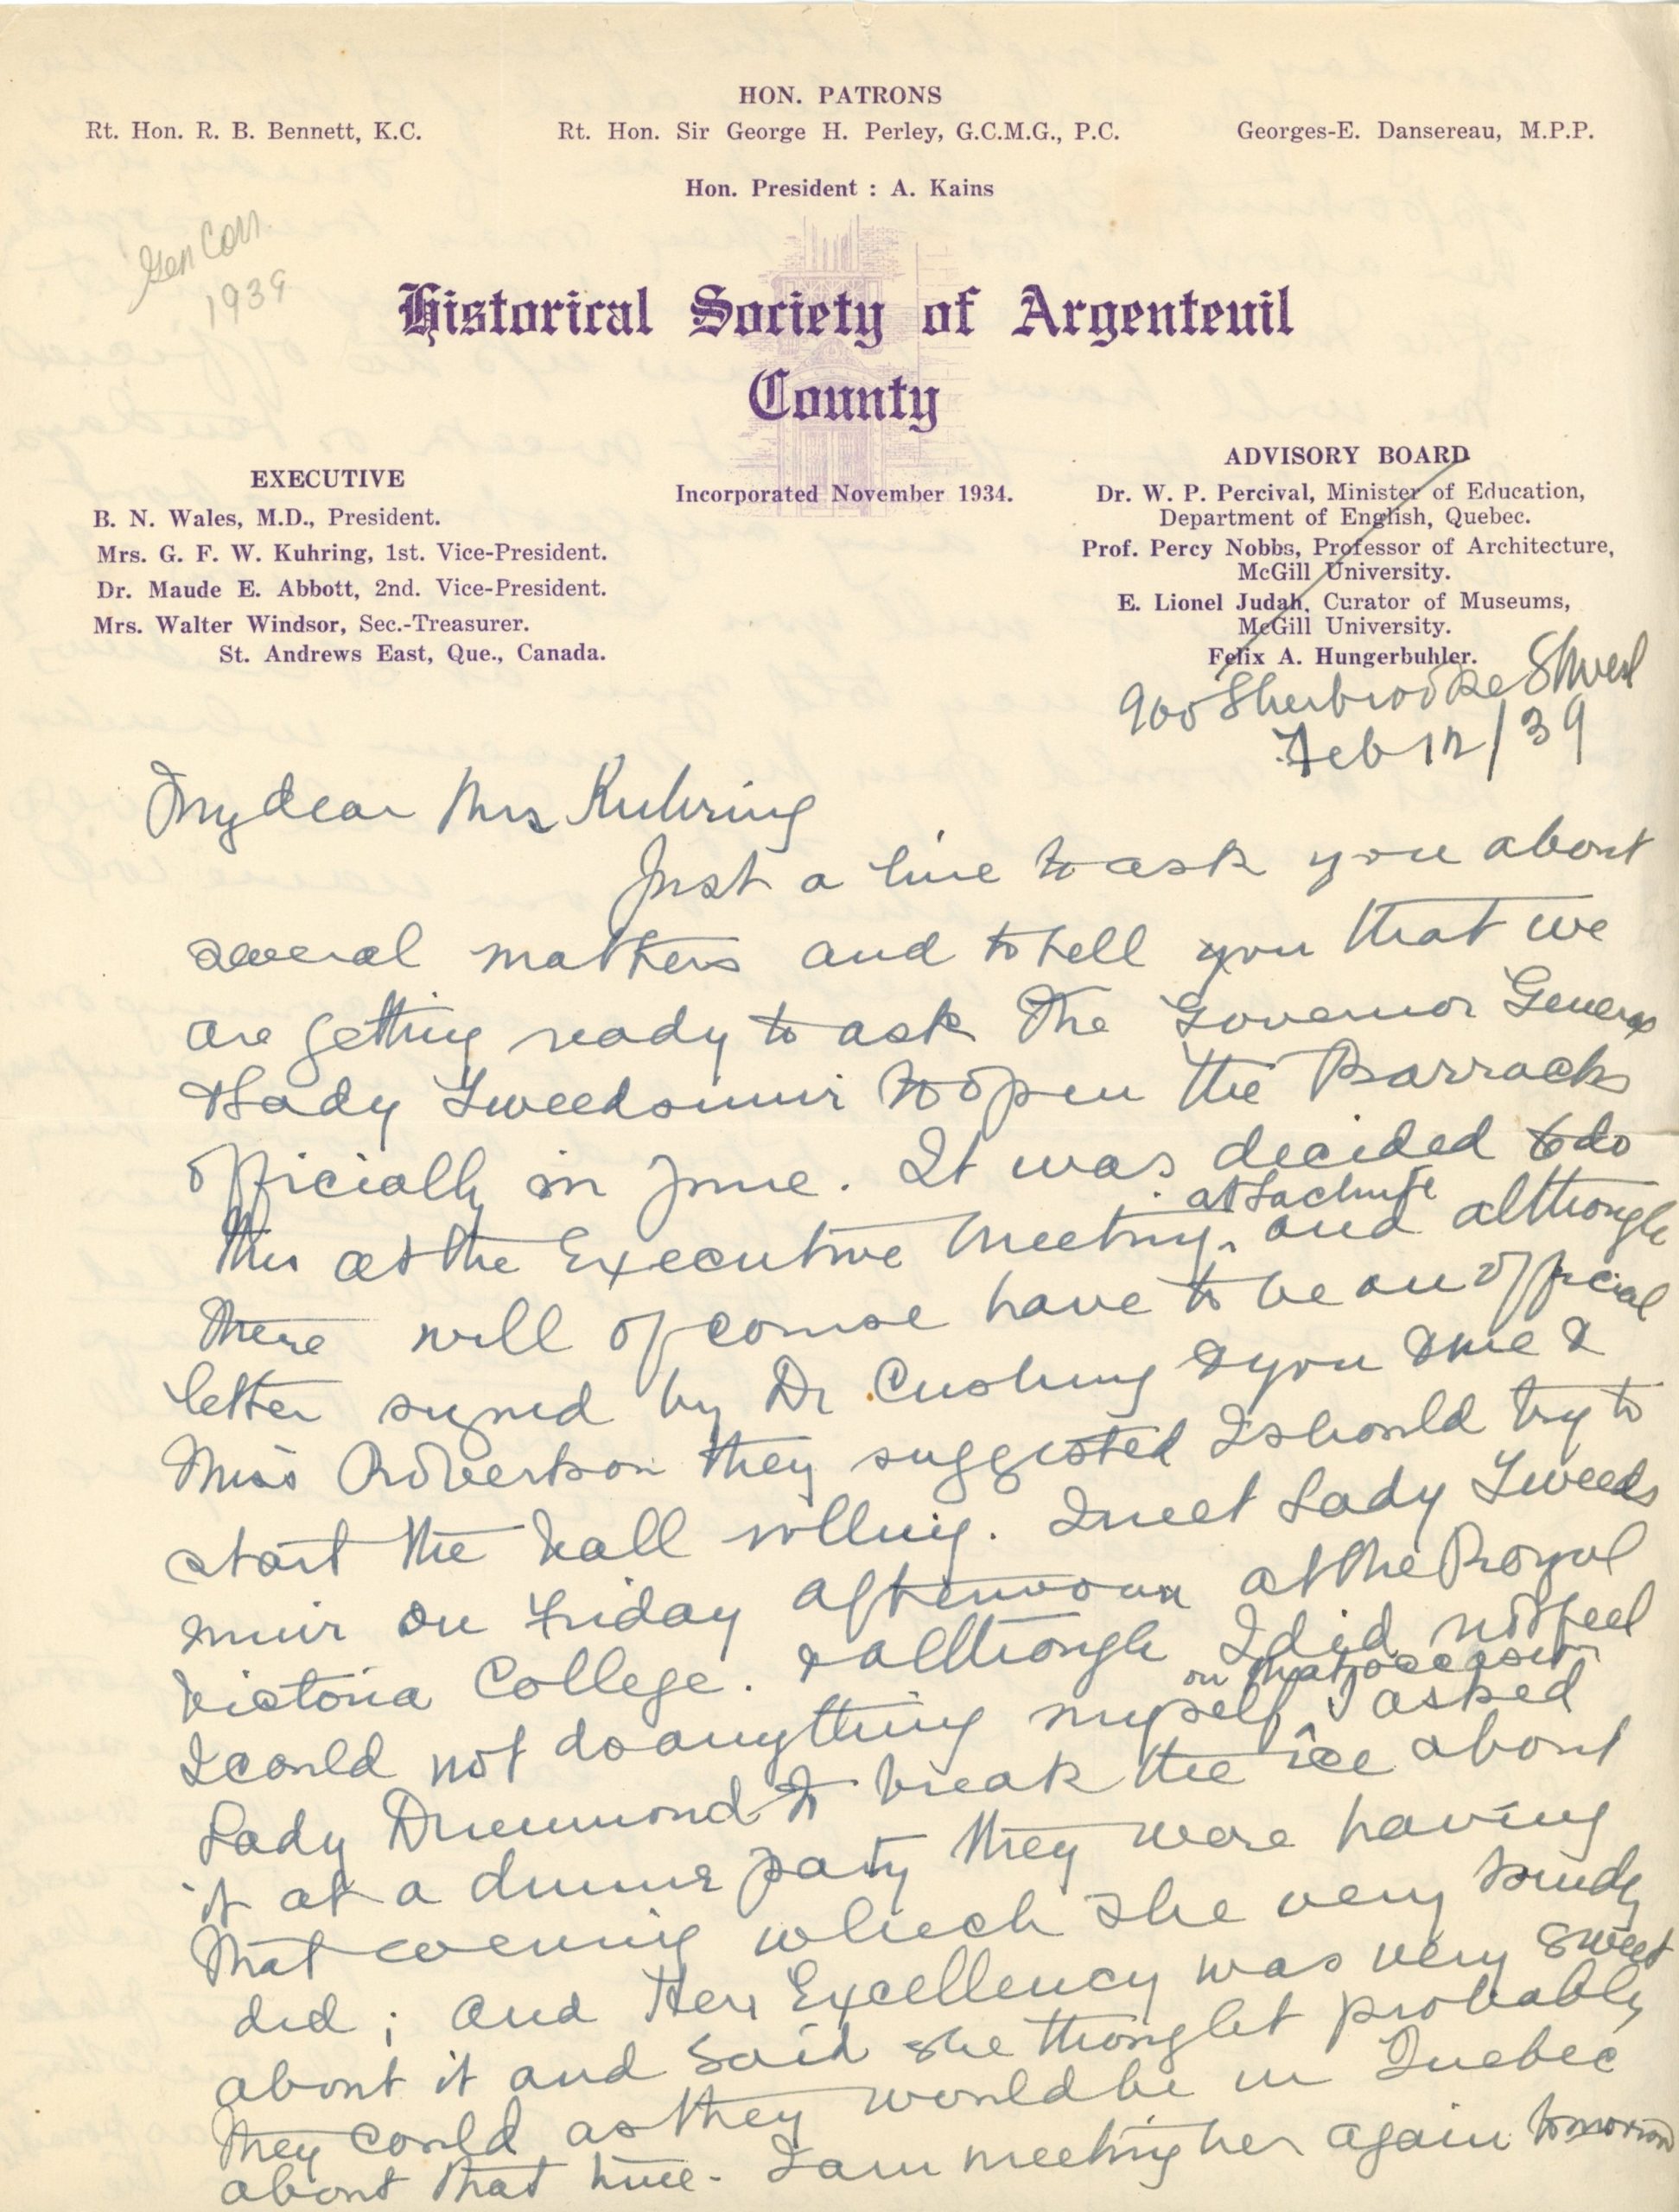 HON. PATRONS
Rt. Hon. R. B. Bennett, K.C. Rt. Hon. Sir George H. Perley, G.C.M.G., P.C. Georges-E. Dansereau, M.P.P.
Hon. President : A. Kains
Gen Corr.
1939
Historical Society of Argenteuil
County
Incorporated November 1934.
EXECUTIVE
B. N. Wales, M.D., President.
Mrs. G. F. W. Kuhring, 1st. Vice-President.
Dr. Maude E. Abbott, 2nd. Vice-President.
Mrs. Walter Windsor, Sec.-Treasurer.
St. Andrews East, Que., Canada.
ADVISORY BOARD
Dr. W. P. Percival, Minister of Education,
Department of English, Quebec.
Prof. Percy Nobbs, Professor of Architecture,
McGill University.
E. Lionel Judah, Curator of Museums,
McGill University.
Felix A. Hungerbuhler.
900 Sherbrooke St West
Feb 12/39
My dear Mrs Kuhring
Just a line to ask you about
several matters and to tell you that we
are getting ready to ask The Governor General
& Lady Tweedsmuir to open the Barracks
officially in June. It was decided to do
at Lachute
this at the Executive Meeting, and although
there will of course have to be an official
letter signed by Dr Cushing & you & me &
Miss Robertson they suggested I should try to
start the ball rolling. I met Lady Tweeds
muir on Friday afternoon at the Royal
Victoria College. & although I did not feel
on that occasion
I could not do anything myself, I asked
Lady Drummond to break the ice about
it at a dinner party they were having
that evening which she very kindly
did ; and Her Excellency was very sweet
about it and said she thought probably
they could as they would be in Quebec
about that time. I am meeting her again tomorrow